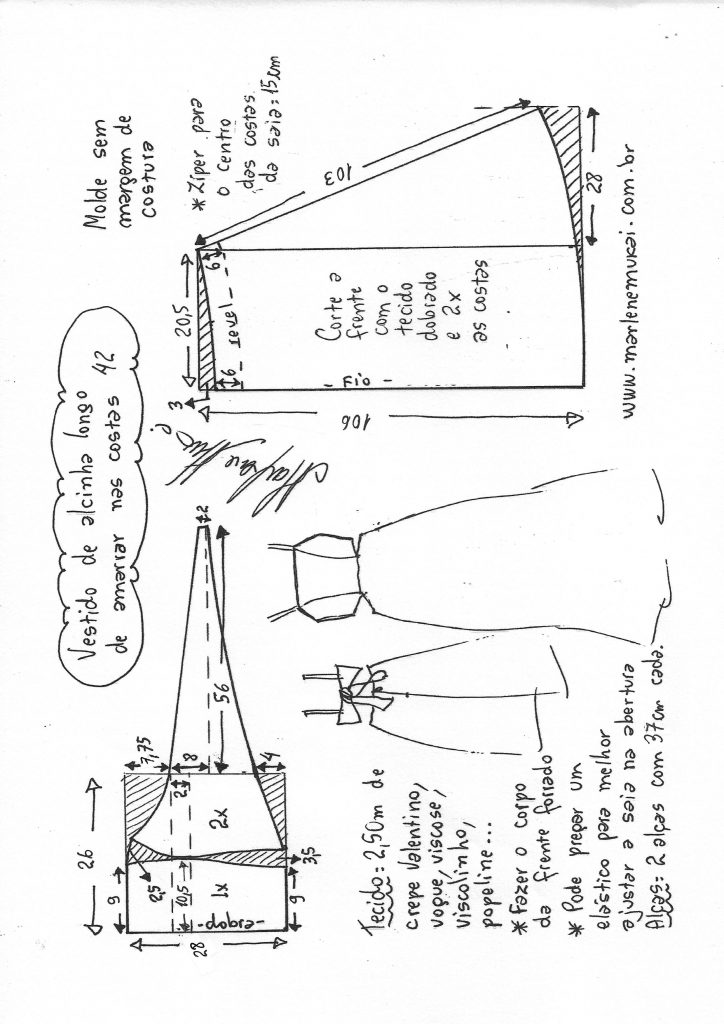 Vestido de alcinha longo
de amarrar nas costas 42
Molde sem
margem de
costura
* Ziper para
o centro
das costas
da saia: 15cm
26
9
7,75
8
2
56
2
4
2,5
2x
1x
10,5
-dobra-
28
9
3,5
3
20,5
6
6
- revel -
103
28
106
- Fio -
Corte a
frente
com o
tecido
dobrado
e 2x
as costas
www.marlenemukai.com.br
Tecido: 2,50m de
crepe Valentino,
voque, viscose,
viscolinho,
popeline...
* Fazer o corpo
da frente forrado
* Pode pregar um
elástico para melhor
ajustar a saia na abertura
Alças: 2 alças com 37cm cada.